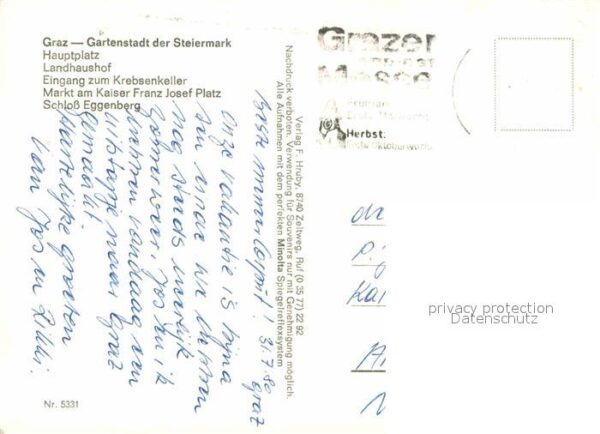 Graz — Gartenstadt der Steiermark
Hauptplatz
Landhaushof
Eingang zum Krebsenkeller
Markt am Kaiser Franz Josef Platz
Schloß Eggenberg
Grazer
Messe
Herbst:
Verlag F. Hruby, 8740 Zeltweg, Ruf (0 35 77) 22 92
Nachdruck verboten. Verwendung für Souvenirs nur mit Genehmigung möglich.
Alle Aufnahmen mit dem perfekten Minolta Spiegelreflexsystem
31.7.80
Graz
Onze vakantie is bijna
en we hebben
nog steeds heerlijk
zomerweer. Jos en ik
hebben vandaag een
uitstapje naar Graz
gemaakt
Hartelijke groeten
van Jos en
privacy protection
Datenschutz
Nr. 5331